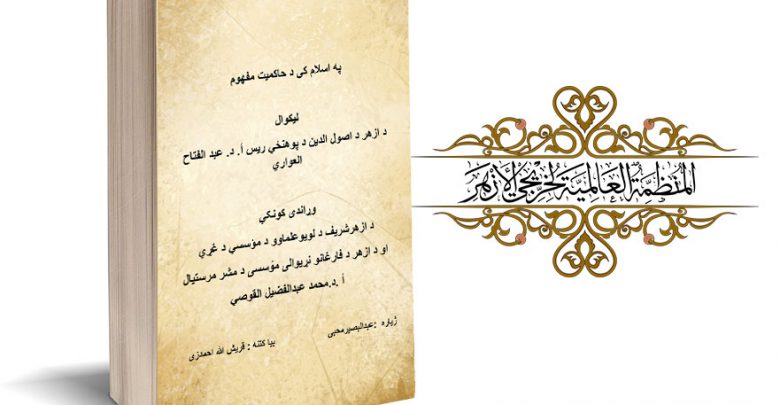 په اسلام کی د حاکمیت مفهوم
لیکوال
د ازهر د اصول الدین د پوهنځي ریس أ. د. عبد الفتاح
العواري
وړاندی کونکي
د ازهرشریف د لویوعلماوو د مؤسسي د غړي
او د ازهر د فارغانو نړیوالی مؤسسی د مشر مرستیال
أ .د.محمد عبدالفضیل القوصي
ژباړه :عبدالبصیرمحبی
بیا کتنه : قریش الله احمدزی
المنظمة العالمية لخريجي الأزهر